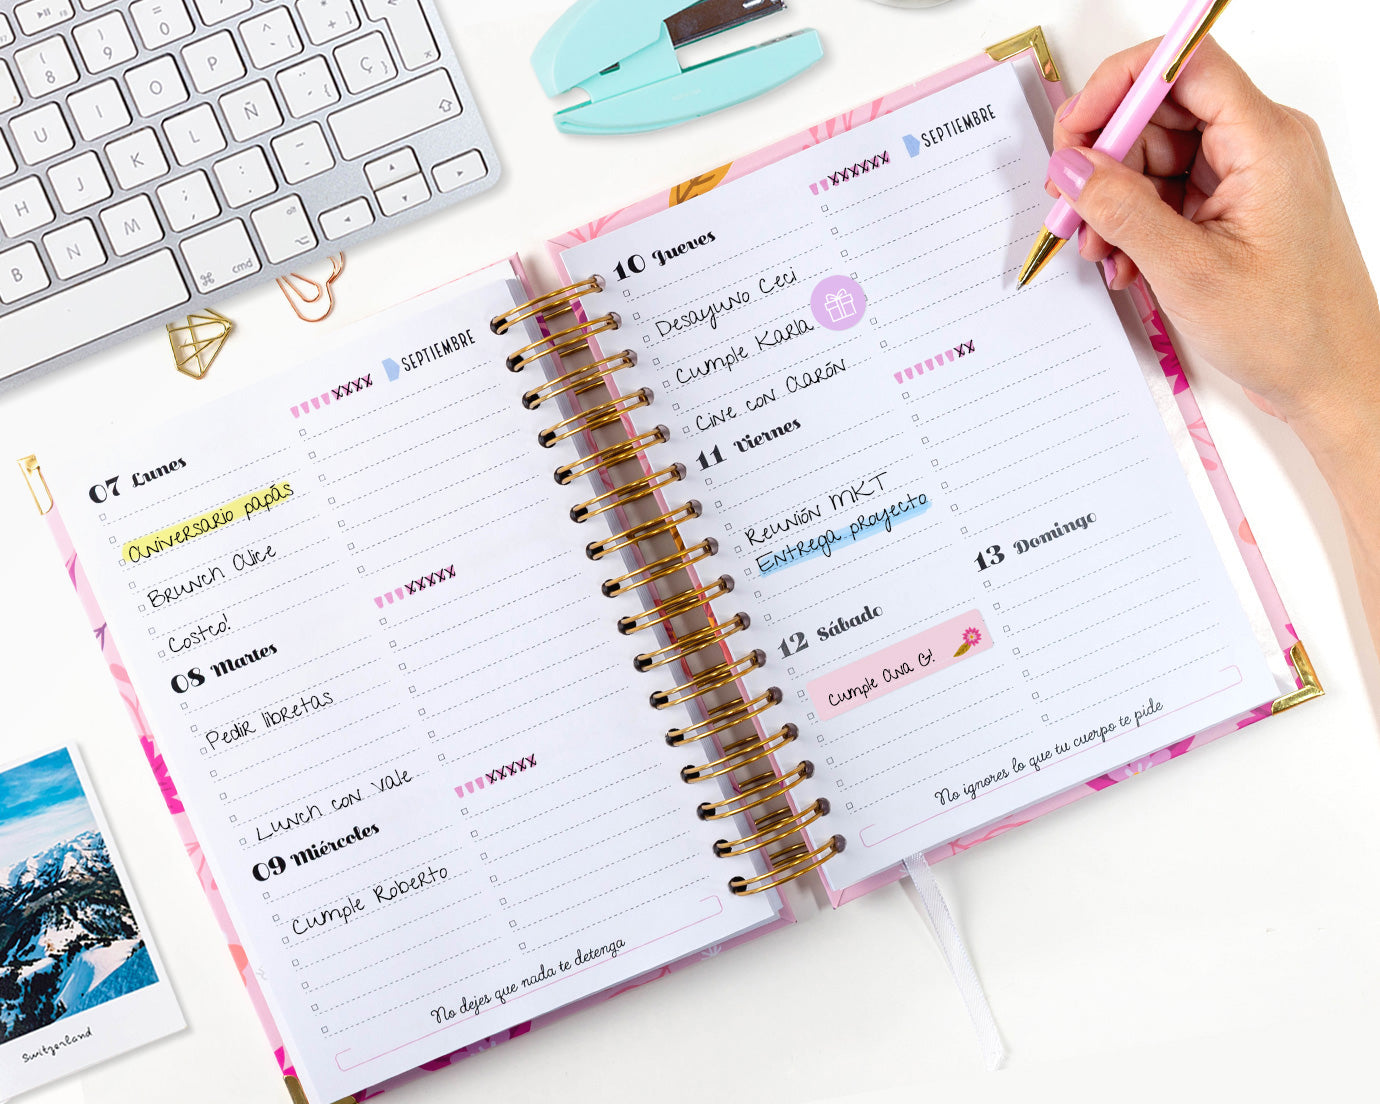 SEPTIEMBRE
07 Lunes
aniversario papás
Brunch Alice
Costco!
08 Martes
Pedir libretas
Lunch con Vale
09 Miércoles
Cumple Roberto
No dejes que nada te detenga
SEPTIEMBRE
10 Jueves
Desayuno Ceci
Cumple Karla
Cine con Clarón
11 Viernes
Reunión MKT
Entrega proyecto
12 Sábado
Cumple Ana G!
13 Domingo
No ignores lo que tu cuerpo te pide
Switzerland
8
9
0
U
I
O
P
H
J
K
L
Ñ
B
N
M
Ç
cmd